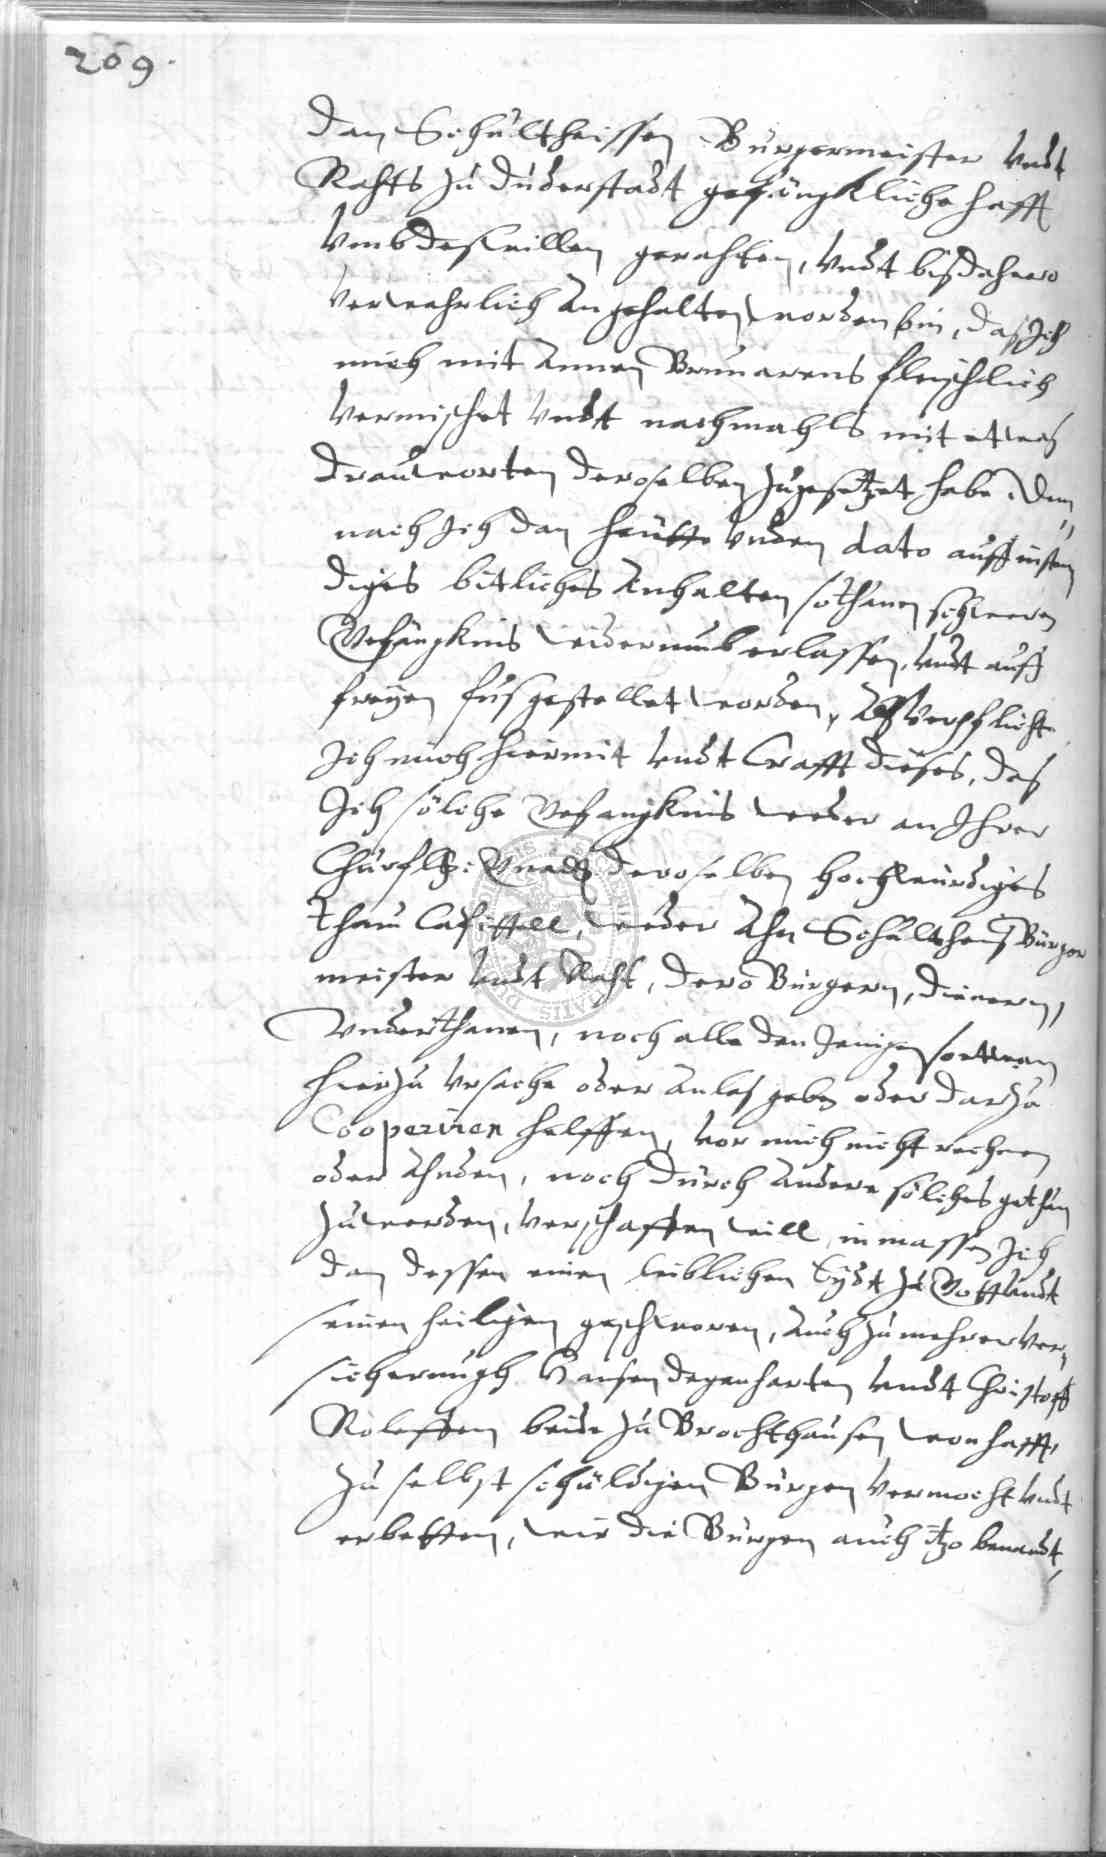 269.
dan Schultheissen Bürgermeister vndt
Rahts zu Duderstadt gefängkliche hafft
vmb deßwillen gerahten, vndt bisdahero
verwahrlich angehalten worden bin, daß Ich
mich mit Annen fleischlich
vermischet vndt nachmahls mit etwaß
drauworten deroselben zugesetzet habe. Dem-
nach Ich dan heütte vnden dato auff instän
diges bitliches Anhalten sothanen schweren
Gefängknis widerumb erlassen, vndt auff
freyen fus gestellet worden, Alß verpflichte
Ich mich hiermit vndt Crafft dieses, das
Ich solche Gefangknis weder an Ihrer
Churfl: Gnadt deroselben hochwürdiges
thum Capittell, weder Ahn Schultheiß Bürger
meister vndt Raht, dero Bürgern, dienern,
Vnderthanen, noch alle den Jenigen so etwan
hierzu vrsache oder Anlas geben oder darzu
Cooperiren helffen, vor mich nicht rechnen
oder Ahnden, noch durch Andere solches gethan
zuwerden, verschaffen will, inmassen Ich
dan dessen einen leiblichen Eydt zu Gott vndt
seinen heiligen geschworen, Auch zu mehrer Ver-
sicherungh Hansen Degenharten vndt Christoff
Roleffen beide zu Brochthausen wonhafft,
zu selbst schuldigen Bürgen vermocht vndt
erbetten, wir die Bürgen auch itzo benandt,